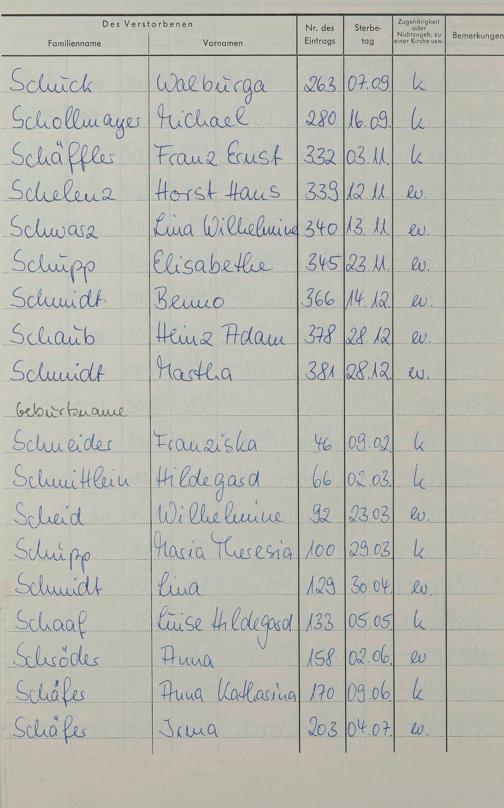 Des Verstorbenen
Familienname Vornamen Nr. des Eintrags Sterbe- tag Zugehörigkeit oder Nichtzugeh. zu einer Kirche usw. Bemerkungen
Schück Walburga 263 07.09 k
Schollmayer Michael 280 16.09. k
Schäffler Franz Ernst 332 03.11. k
Schelenz Horst Hans 339 12.11. ev.
Schwarz Lina Wilhelmine 340 13.11. ev.
Schupp Elisabethe 345 23.11. ev.
Schmidt Benno 366 14.12. ev.
Schaub Heinz Adam 378 28.12 ev.
Schmidt Martha 381 28.12. ev.
Geburtsname
Schneider Franziska 46 09.02. k
Schmittlein Hildegard 66 02.03. k
Scheid Wilhelmine 92 23.03. ev.
Schupp Maria Theresia 100 29.03. k
Schmidt Lina 129 30.04. ev.
Schaaf Luise Hildegard 133 05.05. k
Schröder Anna 158 02.06. ev
Schäfer Anna Katharina 170 09.06. k
Schäfer Irma 203 04.07. ev.